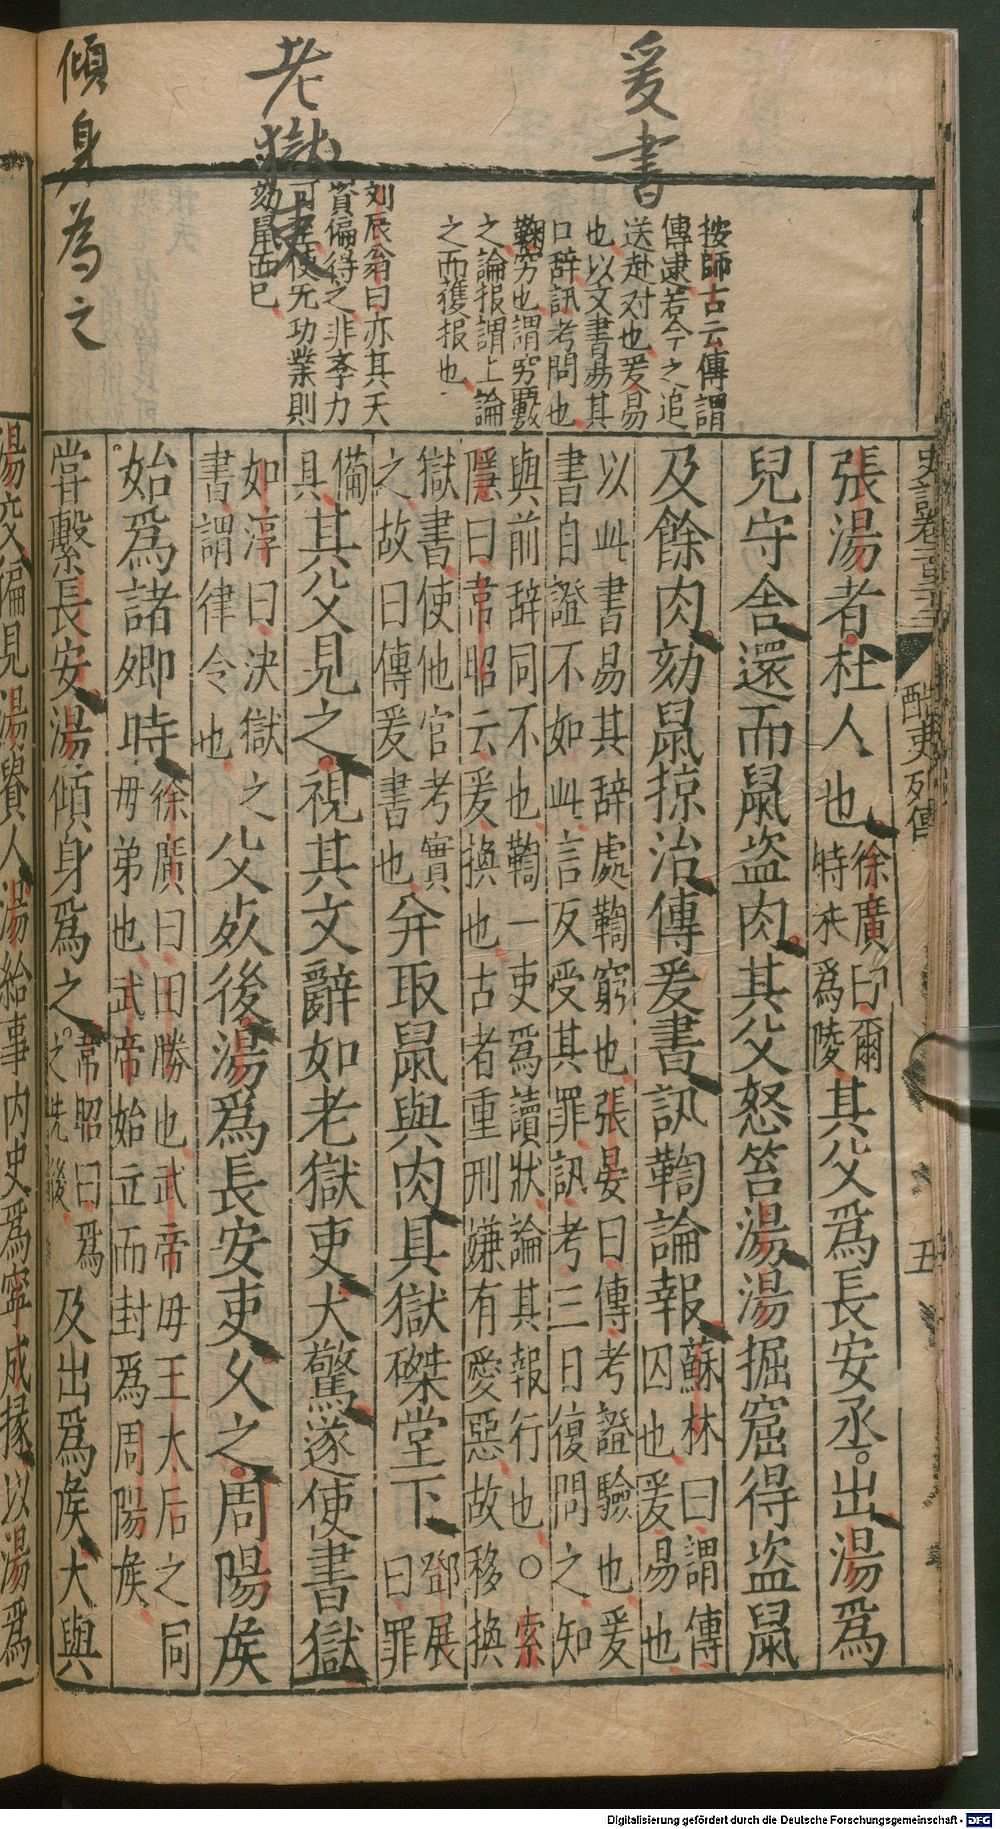 爰書
老獄吏
傾身為之
按師古云傳謂
傳逮若今之追
送赴对也爰易
也以文書易其
口辞訊考問也
鞠穷也謂穷覈
之論报謂上論
之而獲报也
刘辰翁曰亦其天
資偏得之非李力
可至使死功業則
劾鼠而已
史記卷一百二十二
酷吏列傳
五
張湯者杜人也徐廣曰爾
時未為陵其父為長安丞。出湯為
兒守舍還而鼠盜肉其父怒笞湯湯掘窟得盜鼠
及餘肉劾鼠掠治傳爰書訊鞫論報蘇林曰謂傳
囚也爰易也
以此書易其辞處鞫窮也張晏曰傳考證驗也爰
書自證不如此言反受其罪訊考三日復問之知
與前辞同不也鞫一吏為讀狀論其報行也○索
隱曰韋昭云爰換也古者重刑嫌有愛惡故移換
獄書使他官考實
之故曰傳爰書也并取鼠與肉具獄磔堂下鄧展
曰罪
備
具其父見之視其文辭如老獄吏大驚遂使書獄
如淳曰决獄之
書謂律令也父死後湯為長安吏久之周陽侯
始為諸卿時徐廣曰田勝也武帝母王太后之同
母弟也武帝始立而封為周陽侯
嘗繫長安湯傾身為之韋昭曰為
之先後及出為侯大與
湯交徧見湯貴人湯給事内史為寧成掾以湯為
Digitalisierung gefördert durch die Deutsche Forschungsgemeinschaft - DFG